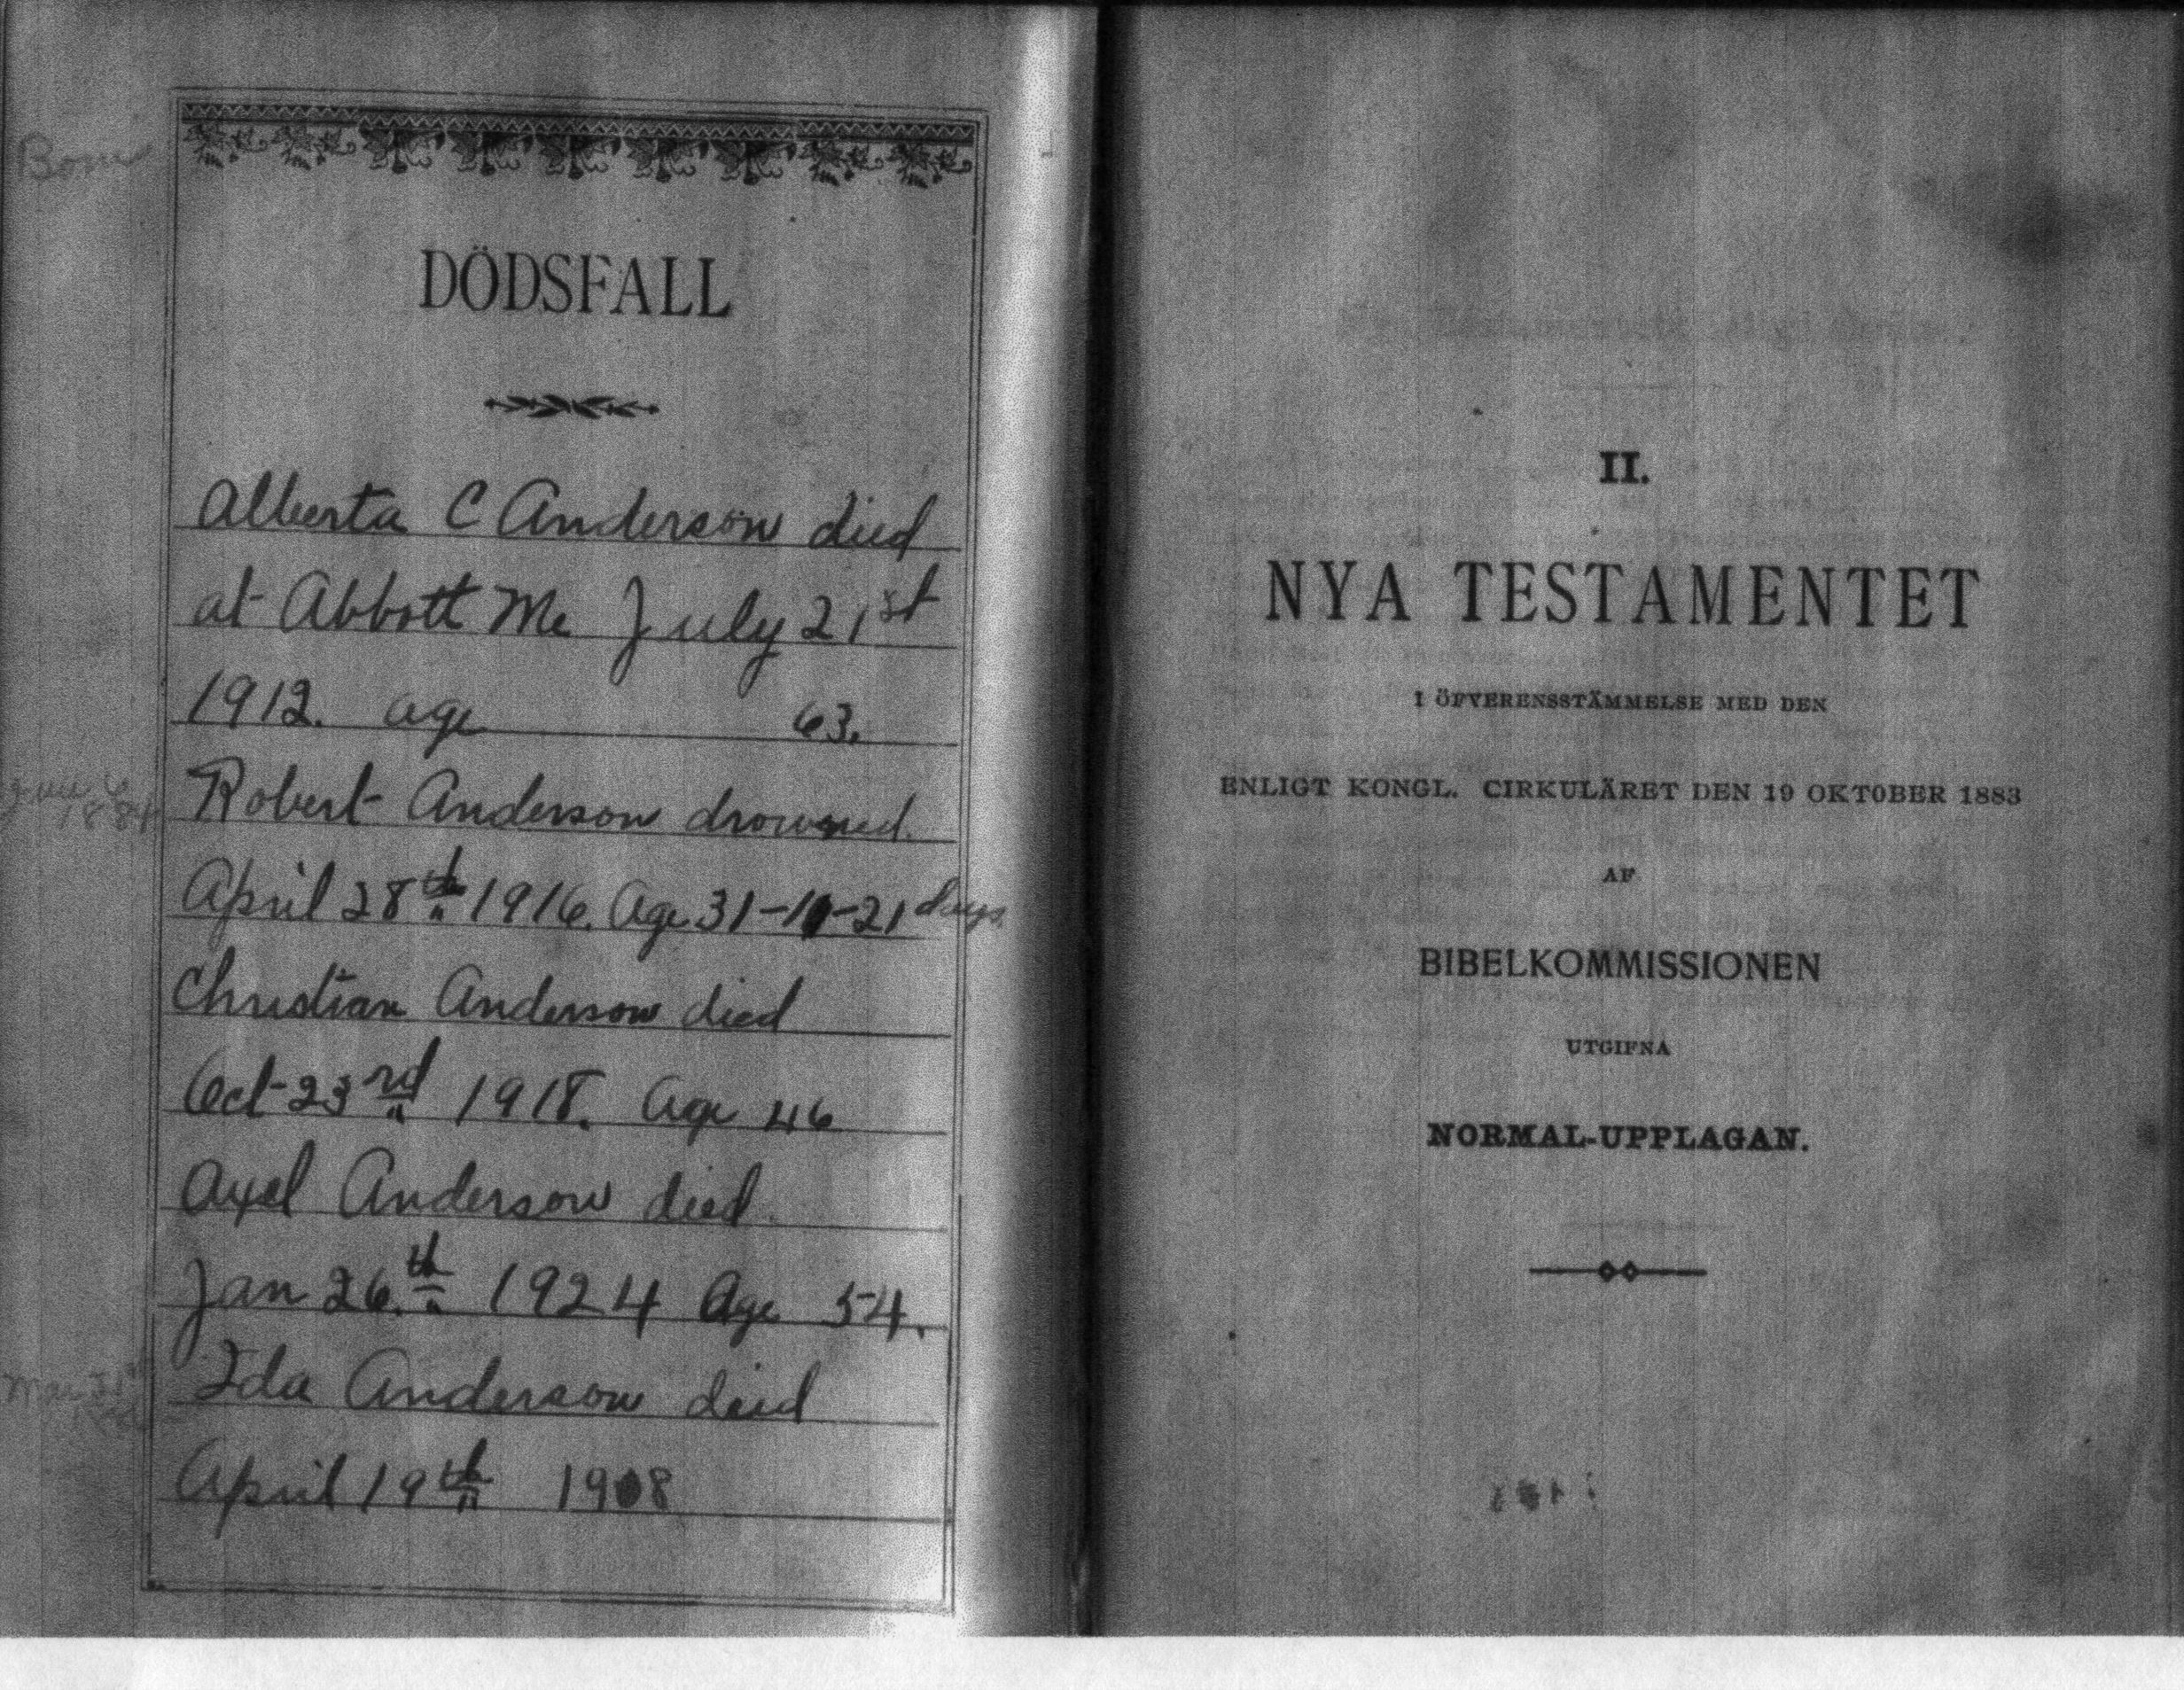 Born
DÖDSFALL
Alberta C Anderson died
at Abbott Me July 21st
1912. age 63.
Robert Anderson drowned.
April 28th 1916. Age 31-10-21 days
Christian Anderson died
Oct 23rd 1918. Age 46
Axel Anderson died.
Jan 26.th 1924 Age 54.
Ida Anderson died
April 19th 1908
II.
NYA TESTAMENTET
I ÖFVERENSSTÄMMELSE MED DEN
ENLIGT KONGL. CIRKULÄRET DEN 19 OKTOBER 1883
AF
BIBELKOMMISSIONEN
UTGIFNA
NORMAL-UPPLAGAN.